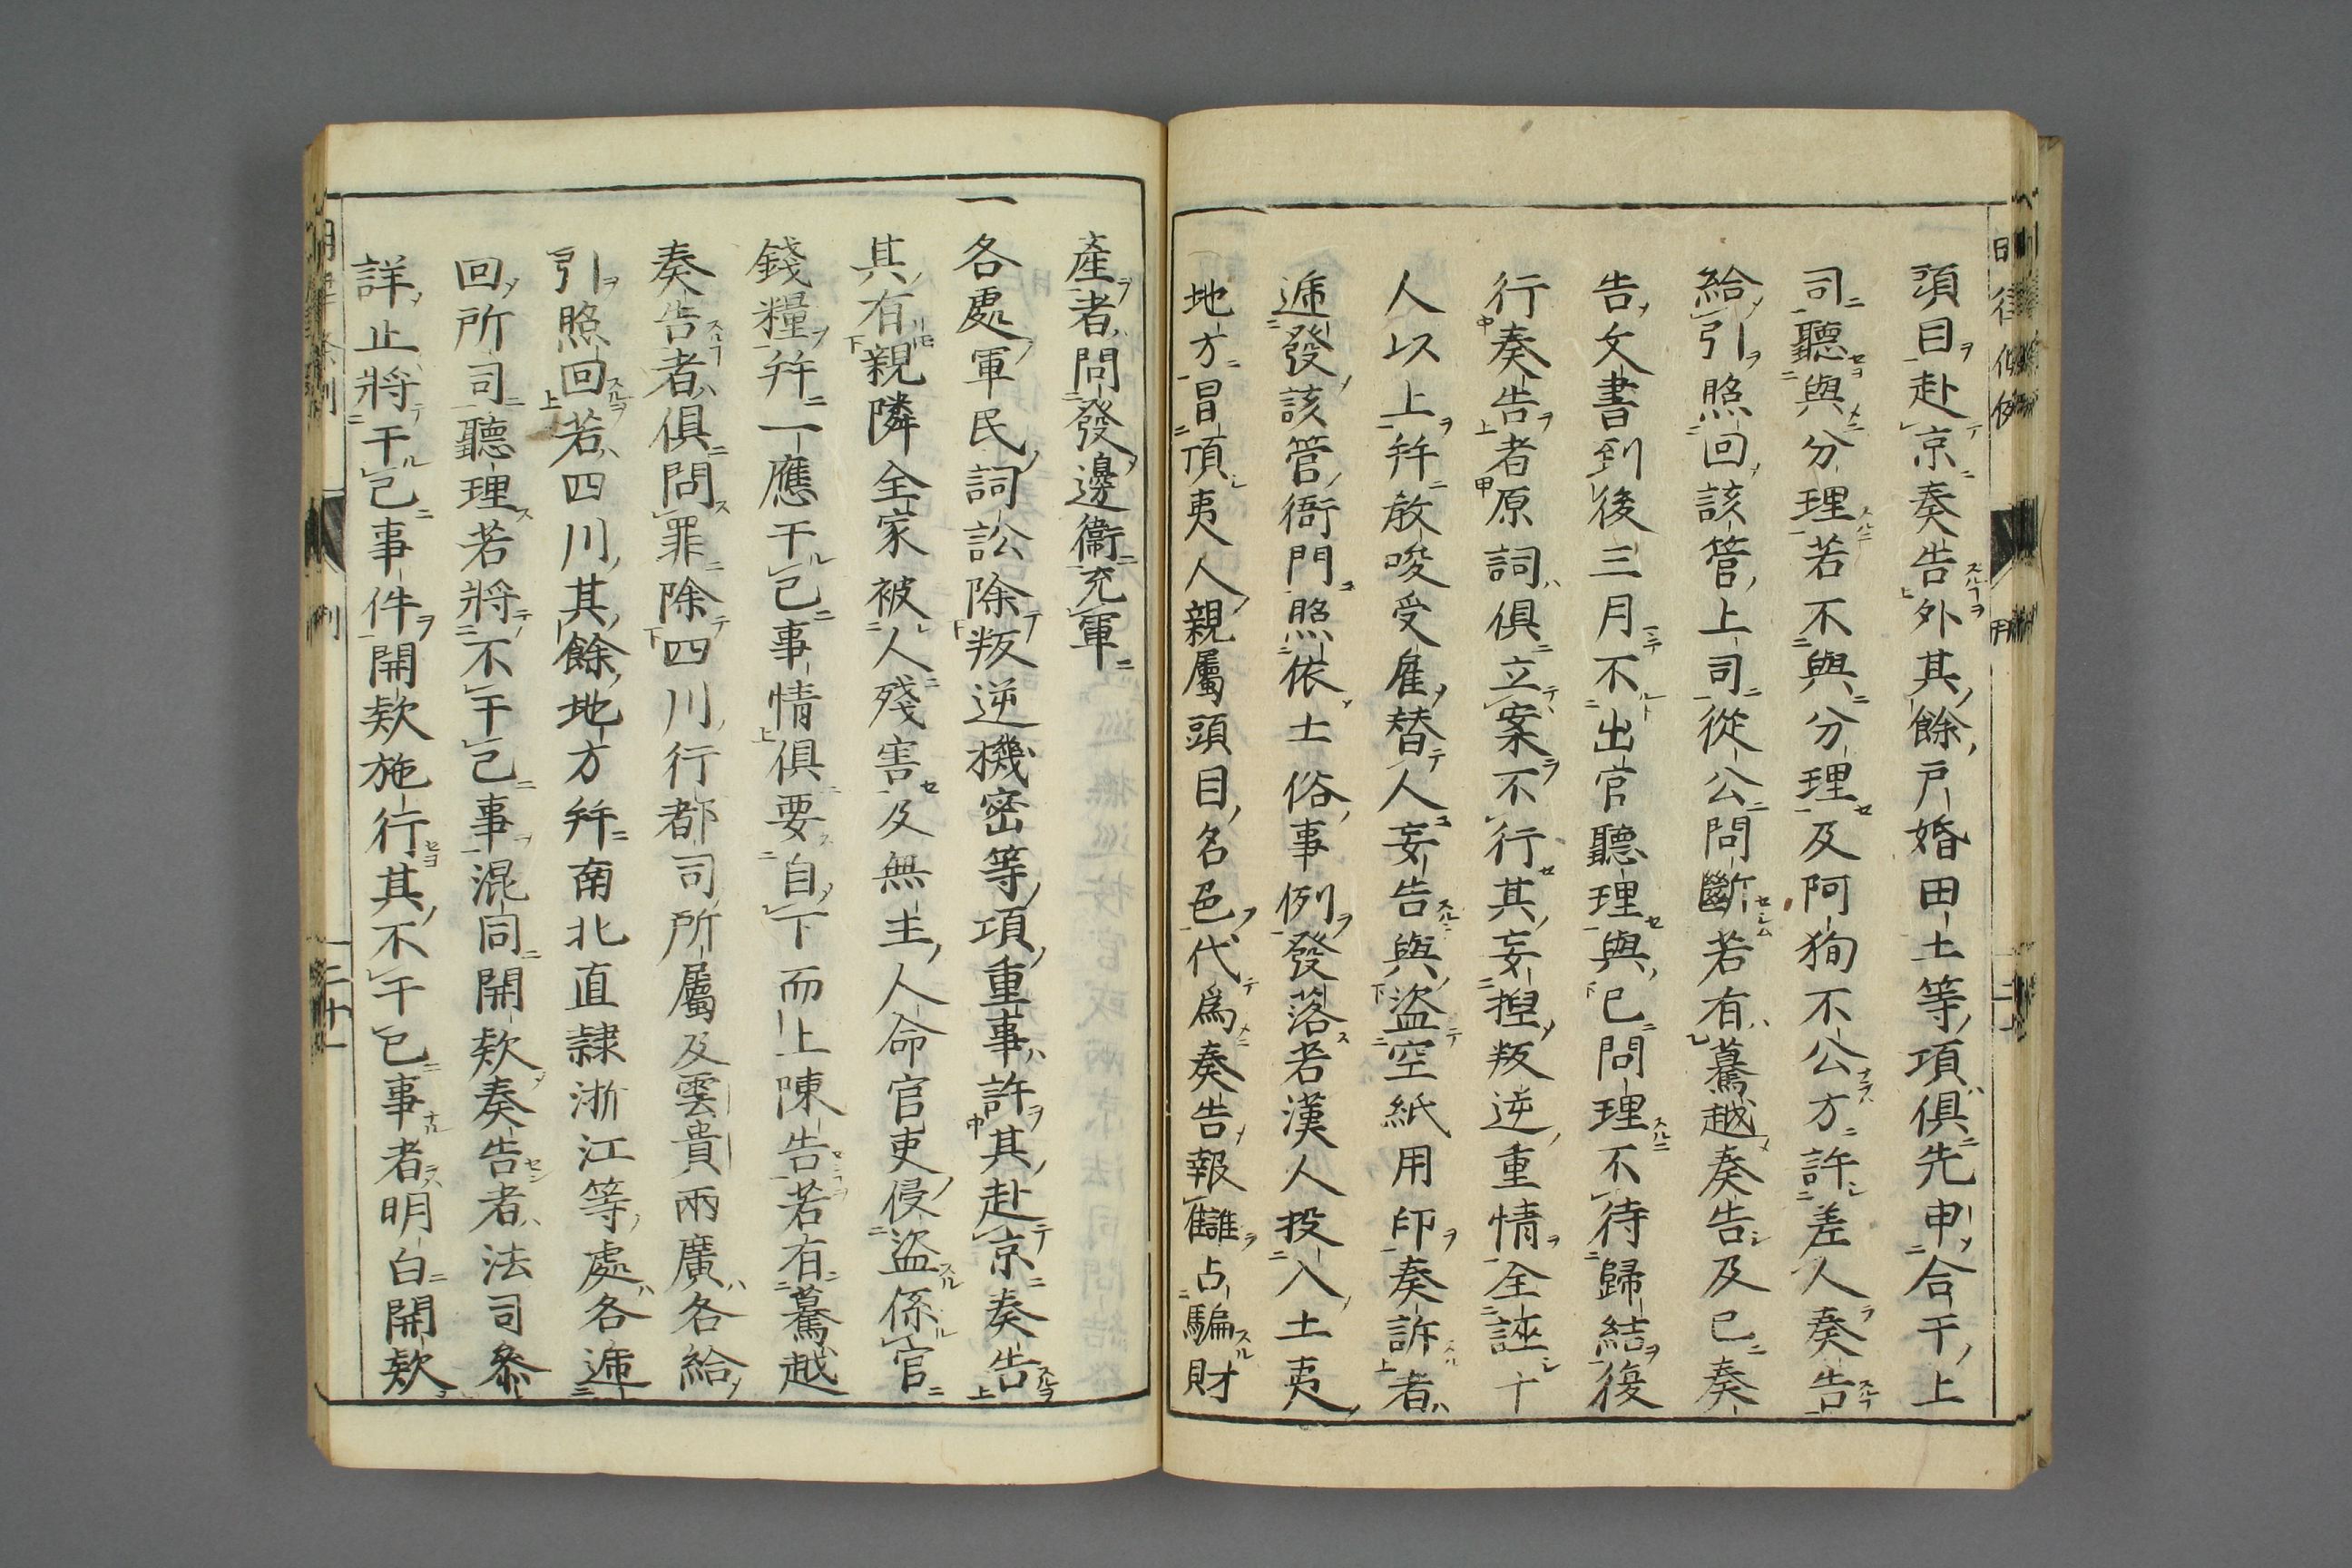 須目赴京奏告外其餘戸婚田土等項俱先申合干上
司聽與分理若不與分理及阿狥不公方許差人奏告
給引照回該管上司從公問斷若有驀越奏告及已奏
告文書到後三月不出官聽理與已問理不待歸結復
行奏告者原詞俱立案不行其妄捏叛逆重情全誣十
人以上幷敎唆受雇替人妄告與盜空紙用印奏訴者
逓發該管衙門照依土俗事例發落若漢人投入土夷
地方冒頂夷人親屬頭目名色代爲奏告報讎占騙財
產者問發邊衞充軍
一各處軍民詞訟除叛逆機密等項重事許其赴京奏告
其有親隣全家被人殘害及無主人命官吏侵盜係官
錢糧幷一應干己事情俱要自下而上陳告若有驀越
奏告者俱問罪除四川行都司所屬及雲貴兩廣各給
引照回若四川其餘地方幷南北直隸浙江等處各逓
回所司聽理若將不干己事混同開欵奏告者法司叅
詳止將干己事件開欵施行其不干己事者明白開欵